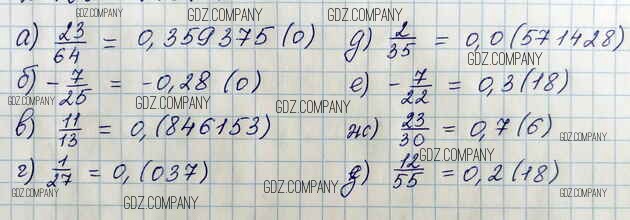 GDZ.COMPANY GDZ.COMPANY GDZ.COMPANY
а) 23/64 = 0,359375 (0) д) 2/35 = 0,0(571428)
GDZ.COMPANY
б) -7/25 = -0,28 (0) е) -7/22 = 0,3(18)
GDZ.COMPANY GDZ.COMPANY GDZ.COMPANY
в) 11/13 = 0,(846153) ж) 23/30 = 0,7(6)
GDZ.COMPANY
GDZ.COMPANY
г) 1/27 = 0,(037) 12/55 = 0,2(18)
GDZ.COMPANY GDZ.COMPANY GDZ.COMPANY
GDZ.COMPANY